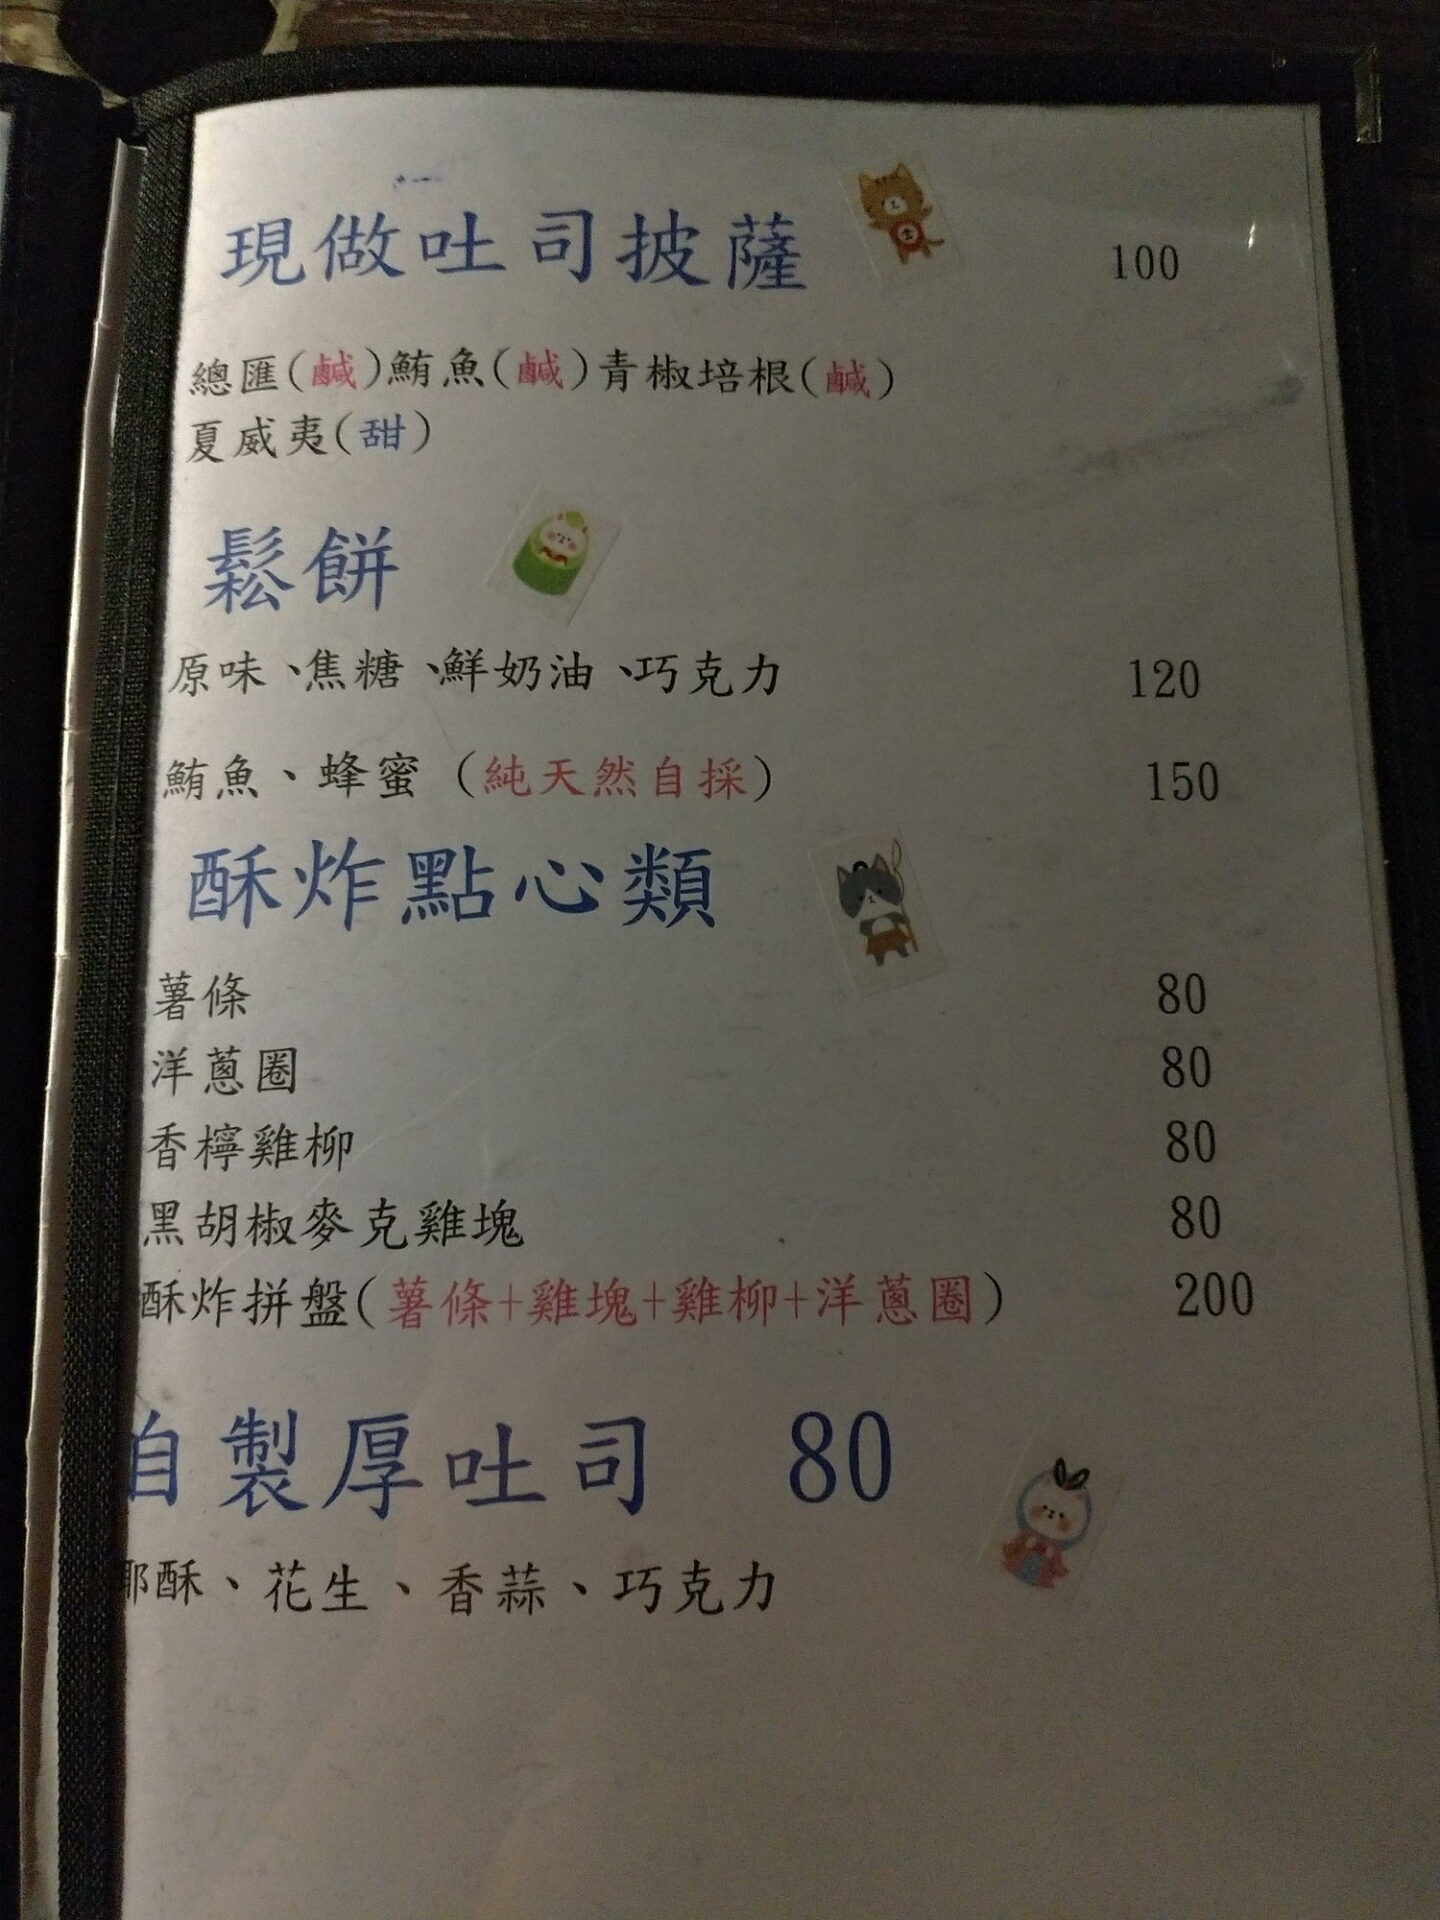 現做吐司披薩 100
總匯(鹹)鮪魚(鹹)青椒培根(鹹)
夏威夷(甜)
鬆餅
原味、焦糖、鮮奶油、巧克力 120
鮪魚、蜂蜜（純天然自採） 150
酥炸點心類
薯條 80
洋蔥圈 80
香檸雞柳 80
黑胡椒麥克雞塊 80
酥炸拼盤(薯條+雞塊+雞柳+洋蔥圈) 200
自製厚吐司 80
椰酥、花生、香蒜、巧克力